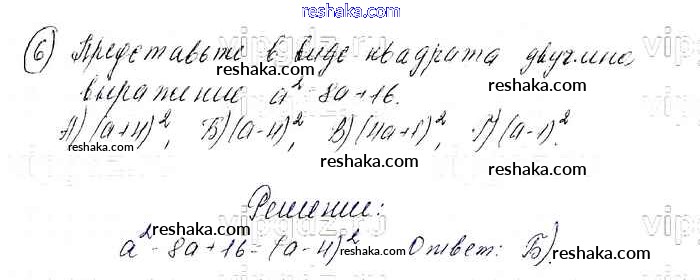 reshaka.com
⑥ Представьте в виде квадрата двучлена
reshaka.com
выражение a² - 8a + 16.
А) (a+4)², Б) (a-4)², В) (4a+1)², Г) (a-1)².
reshaka.com reshaka.com reshaka.com
Решение:
reshaka.com
a² - 8a + 16 = (a - 4)² Ответ: Б).
reshaka.com reshaka.com reshaka.com